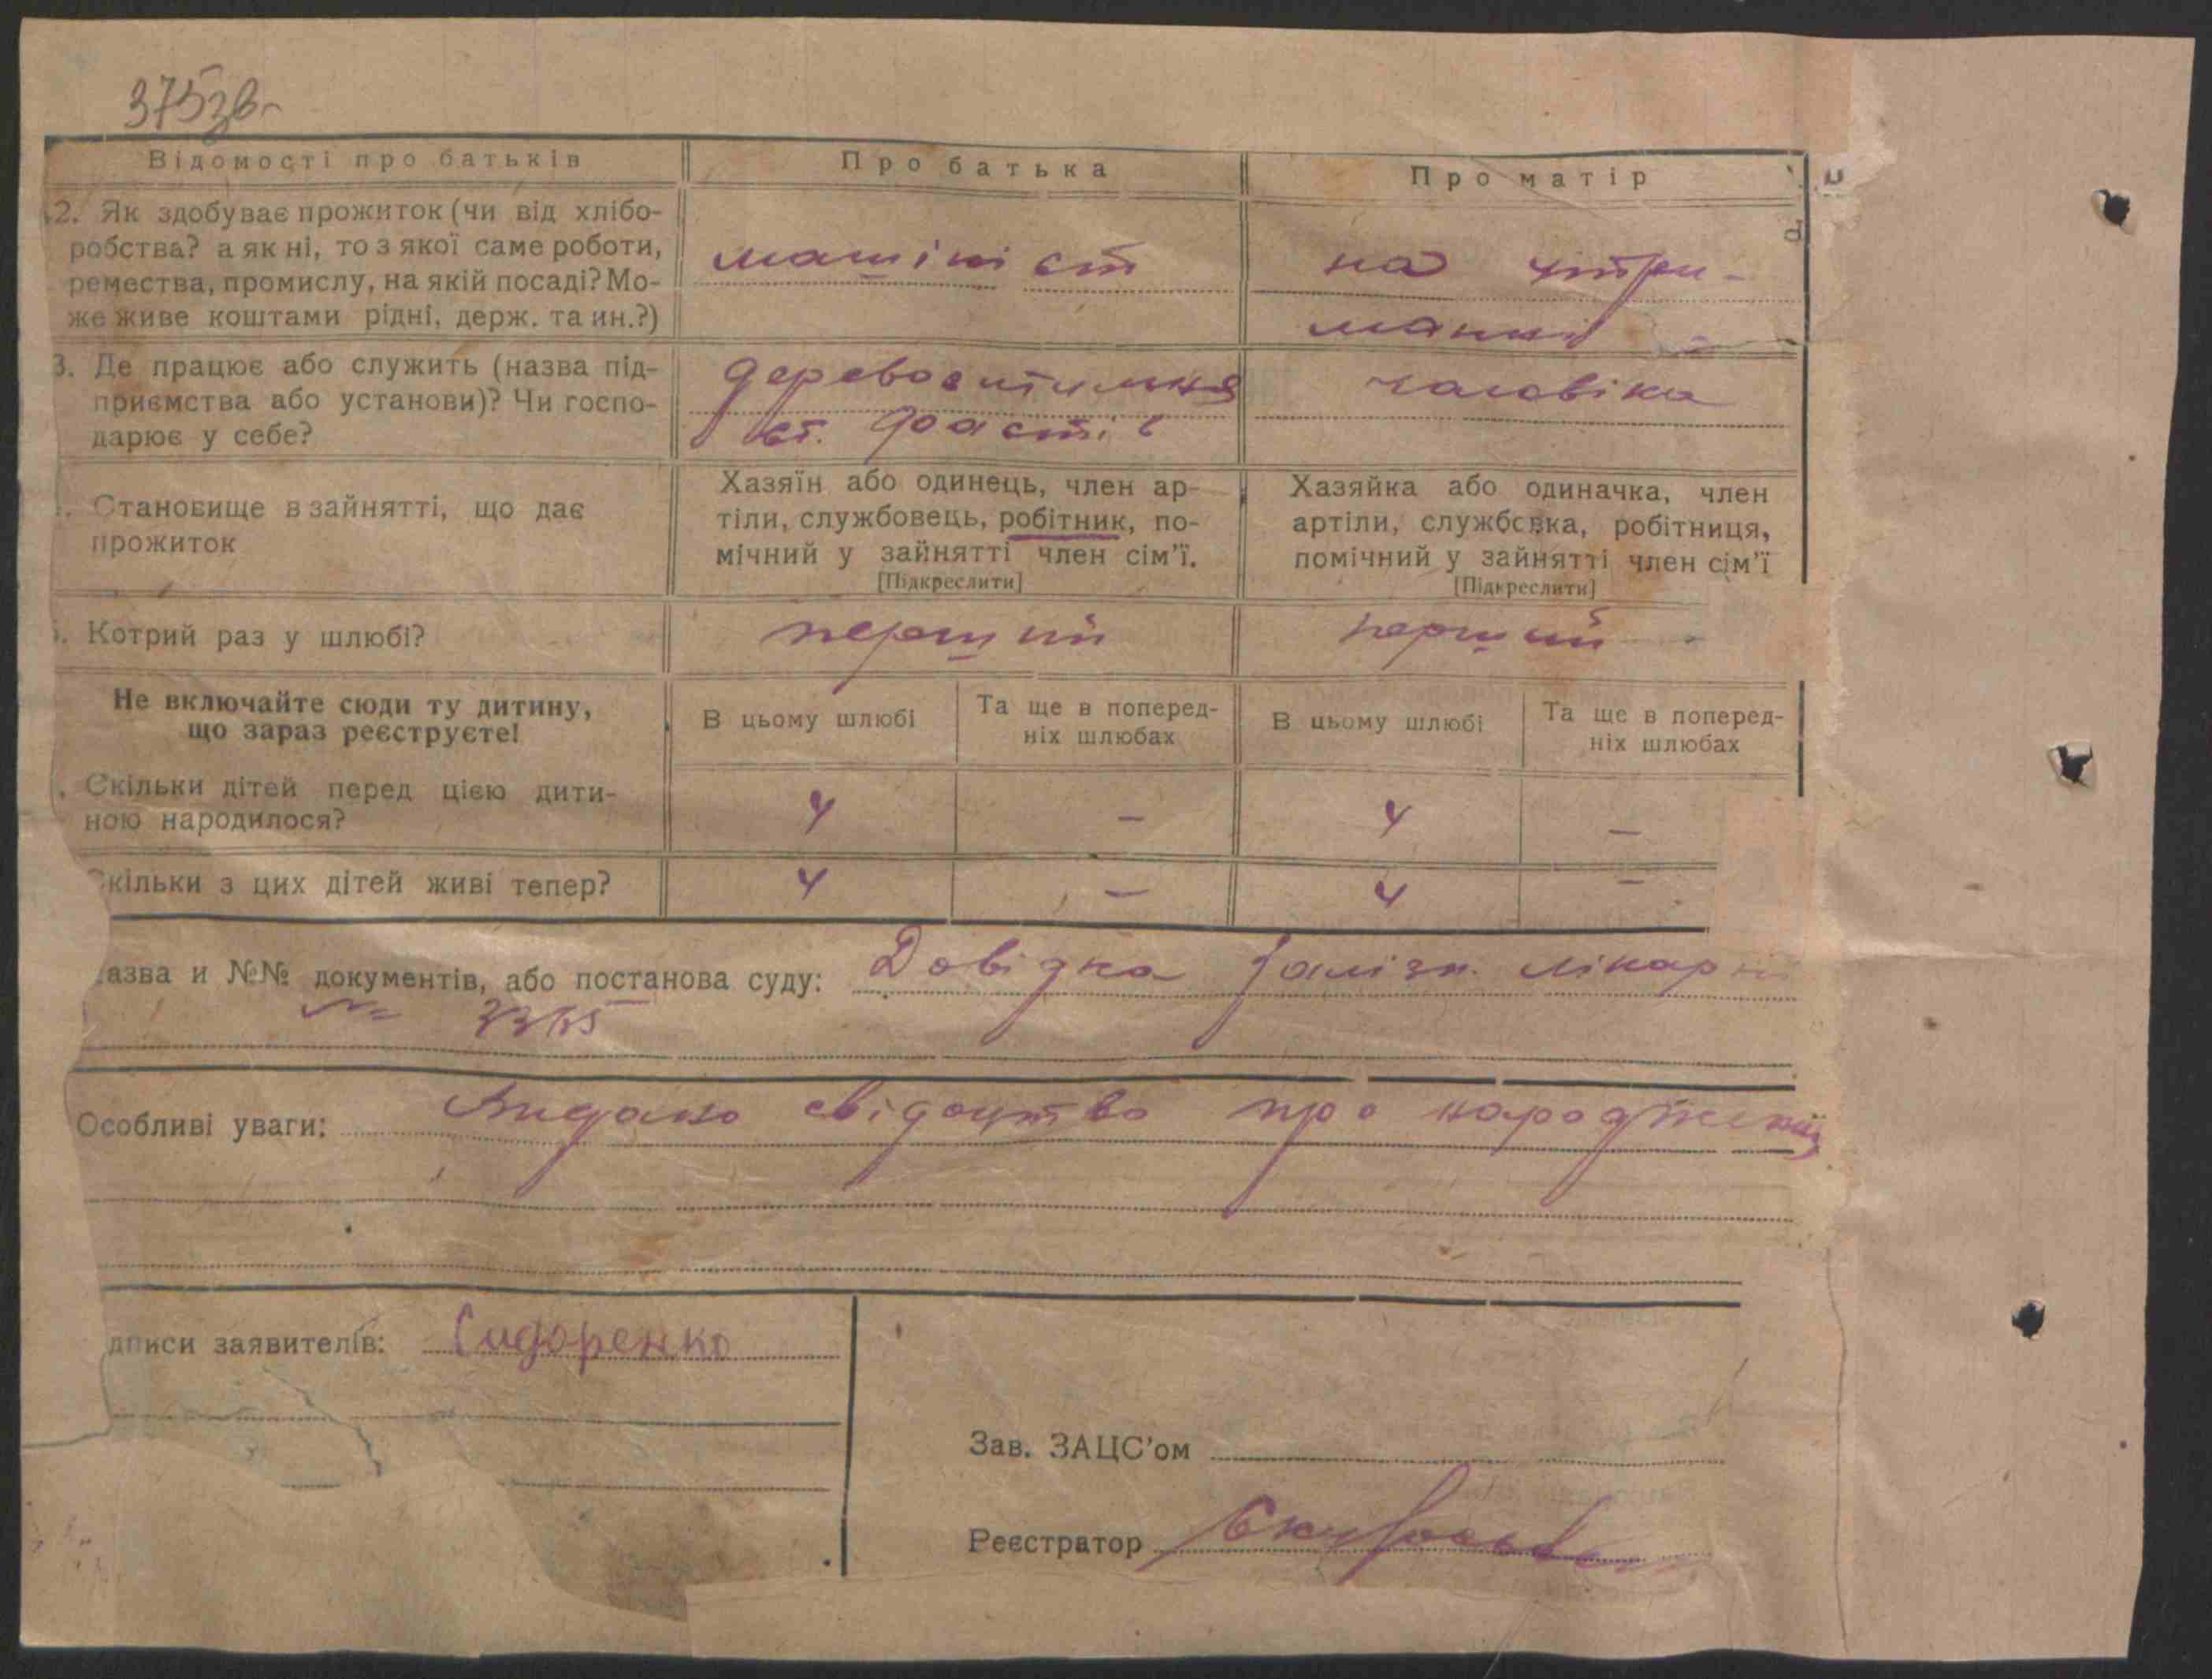 375зв
Відомості про батьків
Про батька
Про матір
2. Як здобуває прожиток (чи від хлібо-
робства? а як ні, то з якої саме роботи,
ремества, промислу, на якій посаді? Мо-
же живе коштами рідні, держ. та ин.?)
машініст
на утри-
манні
3. Де працює або служить (назва під-
приємства або установи)? Чи госпо-
дарює у себе?
ст. Фастів
чаловіка
Становище в зайнятті, що дає
прожиток
Хазяїн або одинець, член ар-
тіли, службовець, робітник, по-
мічний у зайнятті член сім'ї.
[Підкреслити]
Хазяйка або одиначка, член
артіли, службовка, робітниця,
помічний у зайнятті член сім'ї
[Підкреслити]
Котрий раз у шлюбі?
перший
перший
Не включайте сюди ту дитину,
що зараз реєструєте!
В цьому шлюбі
Та ще в поперед-
ніх шлюбах
В цьому шлюбі
Та ще в поперед-
ніх шлюбах
Скільки дітей перед цією дити-
ною народилося?
4
–
4
–
кільки з цих дітей живі тепер?
4
–
4
–
азва и №№ документів, або постанова суду: Довідка Залізн. лікарні
№
Особливі уваги: Видано свідоцтво про народження
дписи заявителів: Сидоренко
Зав. ЗАЦС'ом
Реєстратор